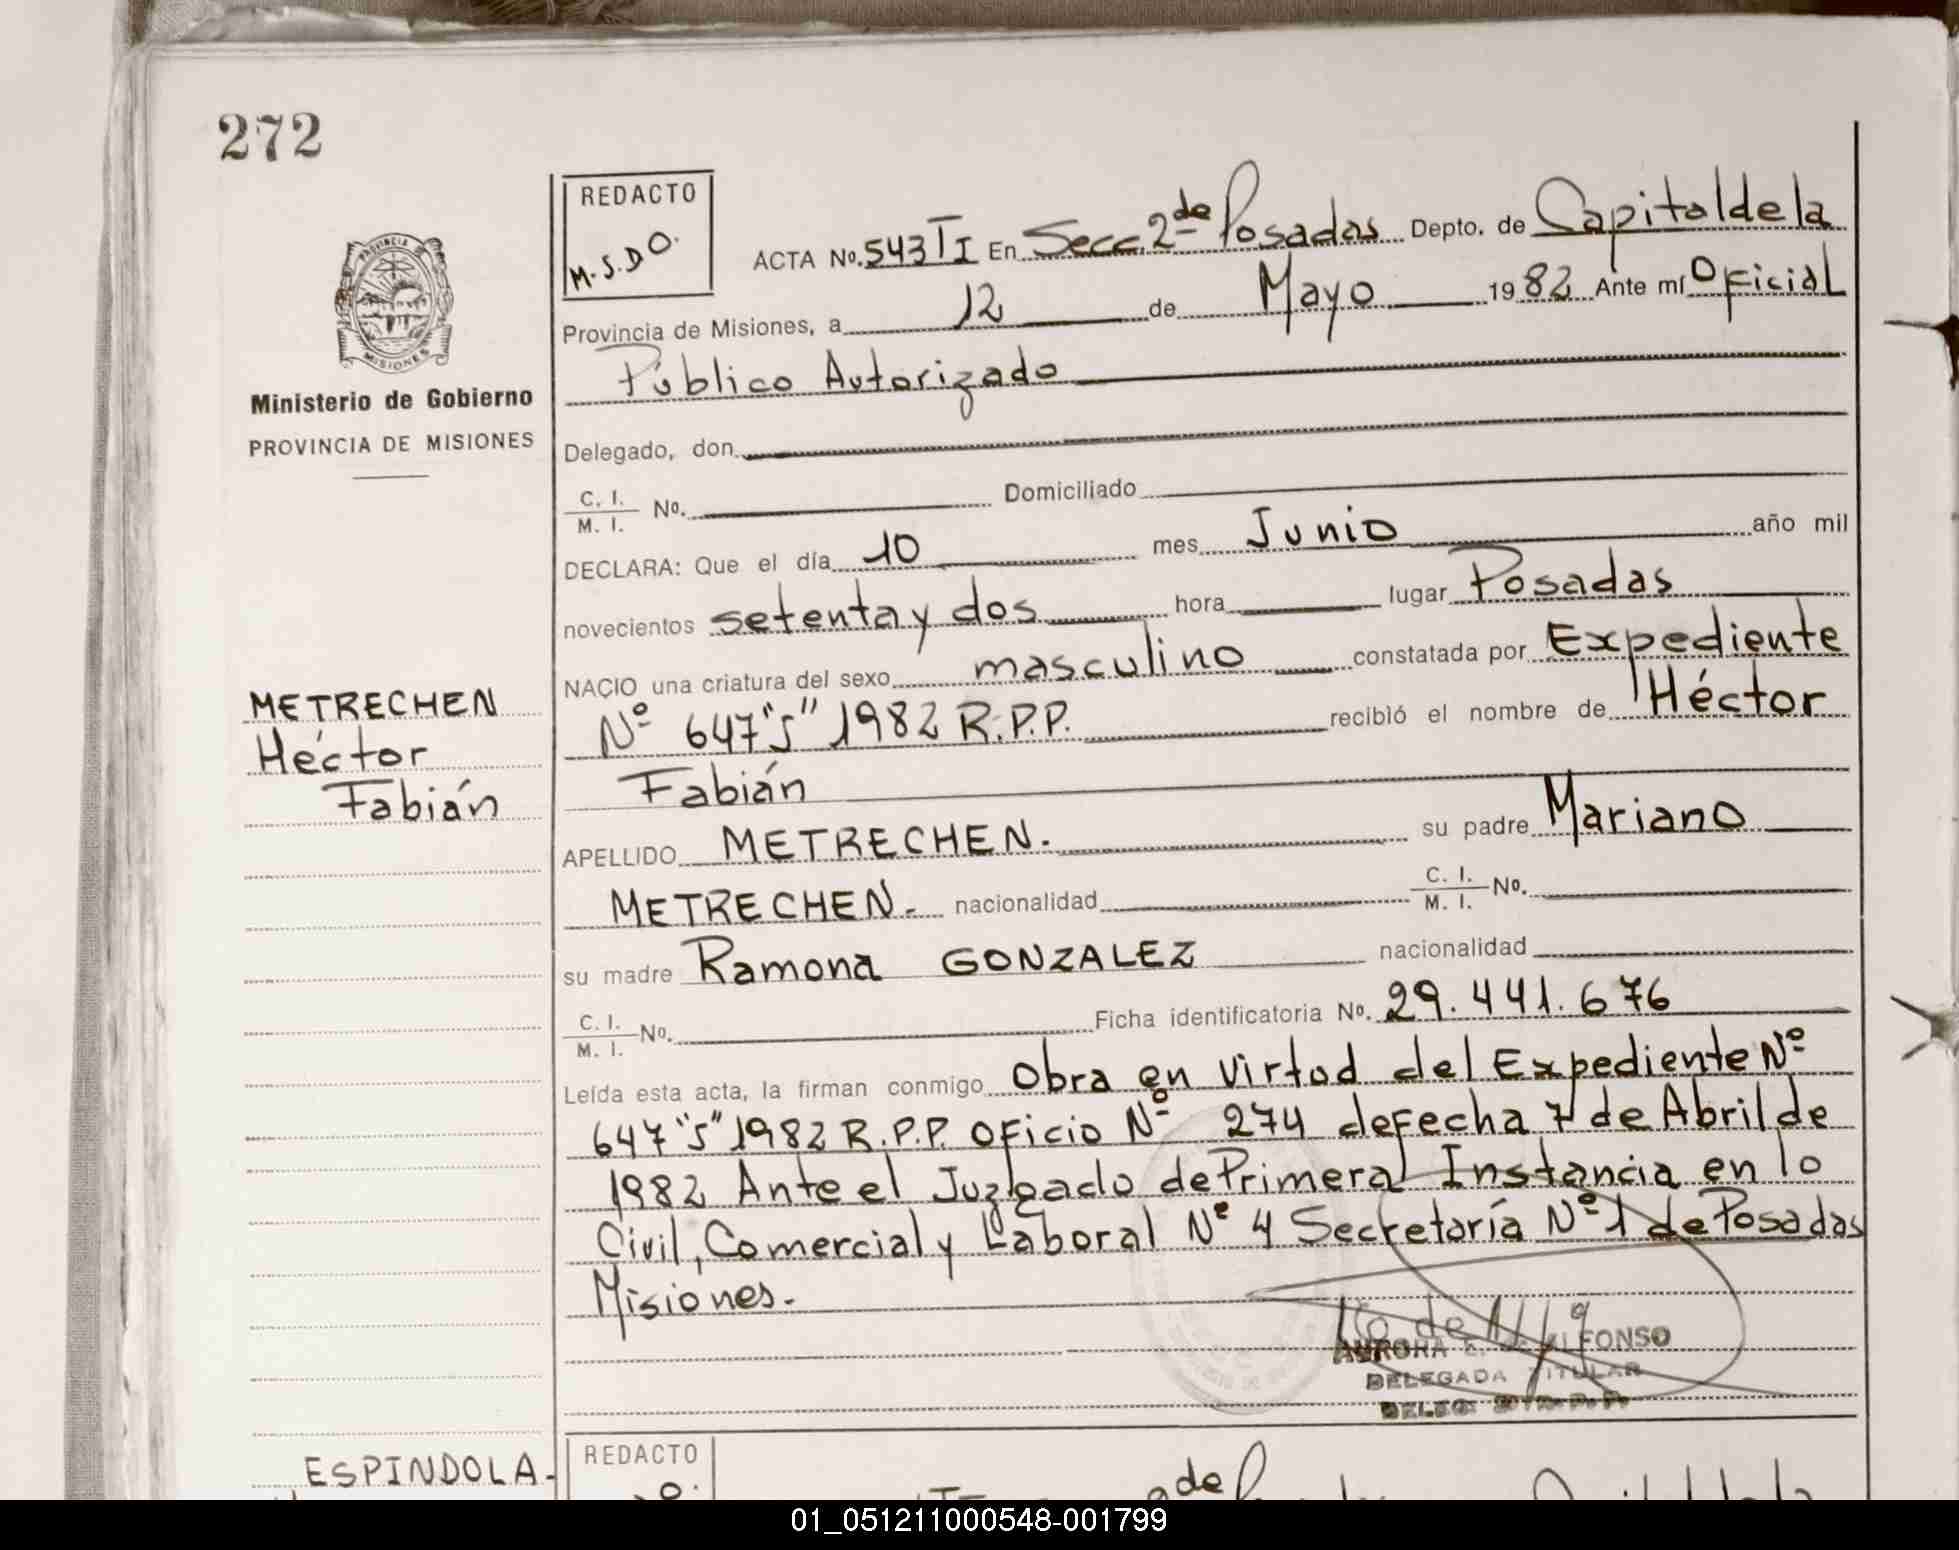 272
REDACTO
M.S.DO.
PROVINCIA DE
MISIONES
Ministerio de Gobierno
PROVINCIA DE MISIONES
ACTA No. 543 TI En Secc. 2de Posadas Depto. de Capital de la
Provincia de Misiones, a 12 de Mayo 1982 Ante mí Oficial
Público Autorizado
Delegado, don
C. I. / M. I. No. Domiciliado
DECLARA: Que el día 10 mes Junio año mil
novecientos setenta y dos hora lugar Posadas
NACIO una criatura del sexo masculino constatada por Expediente
Nº 647"S" 1982 R.P.P. recibió el nombre de Héctor
Fabián
METRECHEN
Héctor
Fabián
APELLIDO METRECHEN. su padre Mariano
METRECHEN. nacionalidad C. I. / M. I. No.
su madre Ramona GONZALEZ nacionalidad
C. I. / M. I. No. Ficha identificatoria No. 29.441.676
Leída esta acta, la firman conmigo Obra en virtud del Expediente Nº
647"S" 1982 R.P.P. Oficio Nº 274 de Fecha 7 de Abril de
1982 Ante el Juzgado de Primera Instancia en lo
Civil, Comercial y Laboral Nº 4 Secretaría Nº 1 de Posadas
Misiones.
AURORA E. DE ALFONSO
DELEGADA TITULAR
ESPINDOLA-
REDACTO
01_051211000548-001799